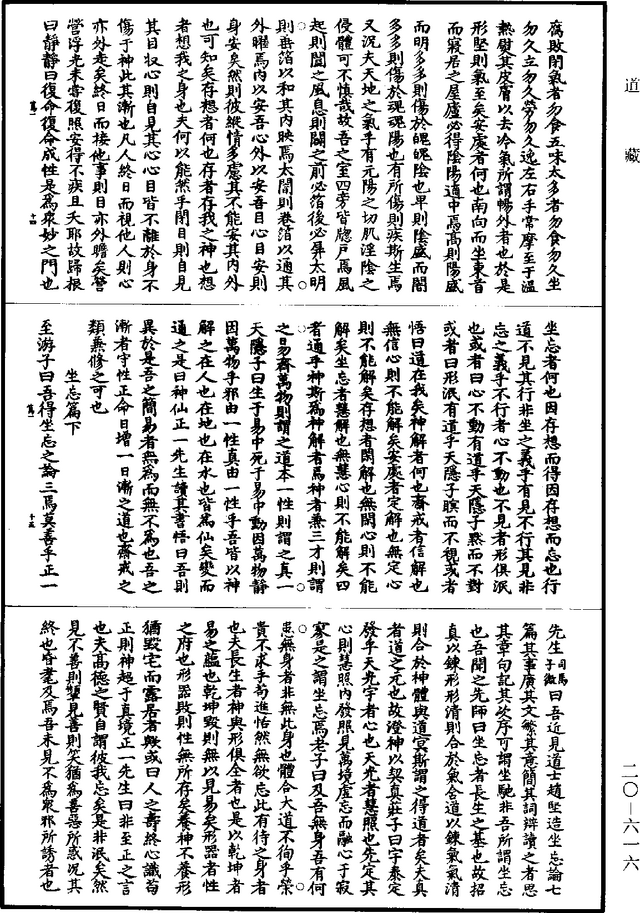 道藏
腐敗閉氣者勿食五味太多者勿食勿久坐
勿久立勿久勞勿久逸左右手常摩至于溫
熱熨其皮膚以去冷氣所謂暢外者也於是
形堅則氣至矣安處者何也南向而坐東首
而寢居之屋廬必得陰陽適中焉高則陽盛
而明多多則傷於魂魂陽也卑則陰盛而闇
多多則傷於魄魄陰也有所傷則疾斯生焉
又況夫天地之氣乎有元陽之切肌淫陰之
侵體可不慎哉故吾之室四旁皆牕戶焉風
起則闔之風息則闢之前必箔後必屏太明
則垂箔以和其內映焉太闇則卷箔以通其
外曜焉內以安吾心外以安吾目心目安則
身安矣然則彼縱情多慮其不能安其內外
也可知矣存想者何也存者存我之神也想
者想我之身也夫何以能然乎閉目則自見
其目收心則自見其心心目皆不離於身不
傷于神此其漸也凡人終日而視他人則心
亦外走矣終日而接他事則目亦外瞻矣營
營浮光未嘗復照安得不疾且夭耶故歸根
曰靜靜曰復命復命成性是爲衆妙之門也
坐忘者何也因存想而得因存想而忘也行
道不見其行非坐之義乎有見不行其見非
忘之義乎不行者心不動也不見者形俱泯
也或者曰心不動有道乎天隱子默而不對
或者曰形泯有道乎天隱子瞑而不視或者
悟曰道在我矣神解者何也齋戒者信解也
無信心則不能解矣安處者定解也無定心
則不能解矣存想者閑解也無閑心則不能
解矣坐忘者慧解也無慧心則不能解矣四
者通乎神斯爲神解者焉神者兼三才則謂
之易齊萬物則謂之道本一性則謂之眞一
天隱子曰生于易中死于易中動因萬物靜
因萬物乎邪由一性眞由一性乎吾皆以神
解之在人也在地也在水也皆爲仙矣變而
通之是曰神仙正一先生讀其書悟曰吾則
異於是吾之簡易者無爲而無不爲也吾之
漸者守性正命日增一日漸之道也齋戒之
類兼修之可也
坐忘篇下
至游子曰吾得坐忘之論三焉莫善乎正一
先生司馬子微曰吾近見道士趙堅造坐忘論七
篇其事廣其文繁其意簡其詞辯讀之者思
其章句記其次序可謂坐馳非吾所謂坐忘
也吾聞之先師曰坐忘者長生之基也故招
眞以鍊形形清則合於氣含道以鍊氣氣清
則合於神體與道冥斯謂之得道者矣夫眞
者道之元也故澄神以契眞莊子曰宇泰定
發乎天光宇者心也天光者慧照也先定其
心則慧照內發照見萬境虛忘而融心于寂
寥是之謂坐忘焉老子曰及吾無身吾有何
患無身者非無此身也體合大道不徇乎榮
貴不求乎苟進恬然無欲忘此有待之身者
也夫長生者神與形俱全者也是以乾坤者
易之蘊也乾坤毀則無以見易矣形器者性
之府也形器敗則性無所存矣養神不養形
猶毀宅而露居者歟或曰人之壽終心識苟
正則神超于眞境正一先生曰非至正之言
也夫高德之賢自謂彼我忘矣是非泯矣然
見不善則顰見善則笑猶爲善惡所惑況其
終也昏耄及焉吾未見不爲衆邪所誘者也
二〇—六一六